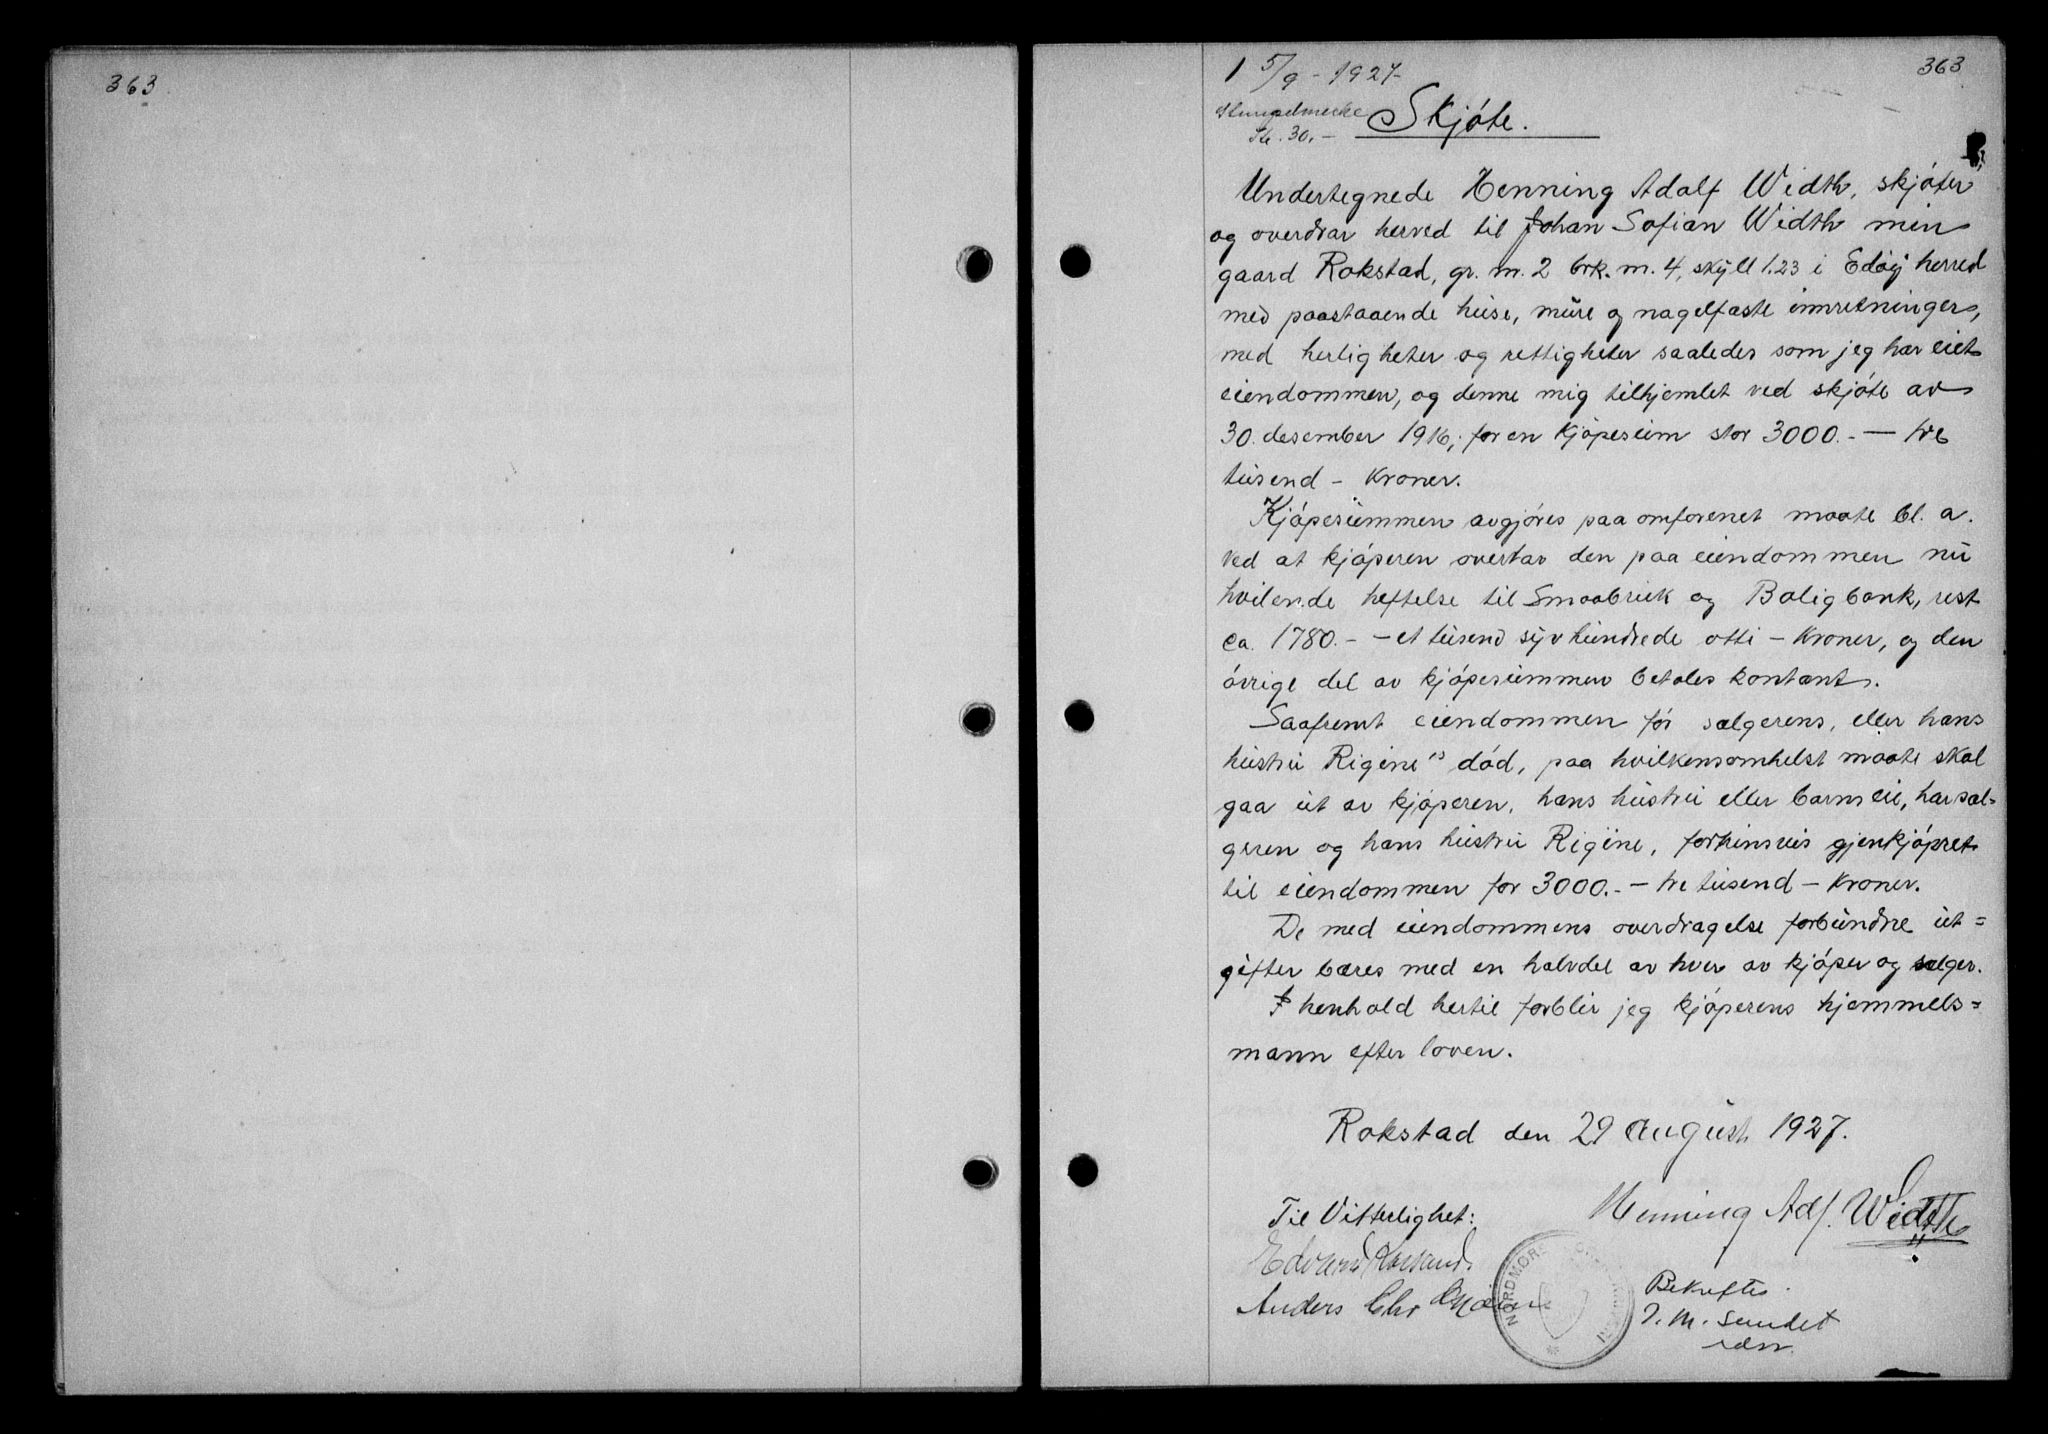 363
363
1 5/9 - 1927-
Stempelmerke
Kr. 30.-
Skjøte.
Undertegnede Henning Adolf Width, skjøter
og overdrar herved til Johan Sofian Width min
gaard Rokstad, gr. nr. 2 brk. nr. 4, skyll 1.23 i Edøy herred
med paastaaende huse, mure og nagelfaste innretninger,
med herligheter og rettigheter saaledes som jeg har eiet
eiendommen, og denne mig tilhjemlet ved skjøte av
30. desember 1916, for en kjøpesum stor 3000.- — tre
tusend - kroner.
Kjøpesummen avgjøres paa omforenet maate bl. a.
ved at kjøperen overtar den paa eiendommen nu
hvilende heftelse til Smaabruk og Boligbank, rest
ca. 1780.- - et tusend syv hundrede otti - kroner, og den
øvrige del av kjøpesummen betales kontant.
Saafremt eiendommen før sælgerens, eller hans
hustru Rigine's død, paa hvilkensomhelst maate skal
gaa ut av kjøperen, hans hustru eller barns eie, har sæl=
geren og hans hustru Rigine, forkinsvis gjenkjøpret
til eiendommen for 3000.- - tre tusend - kroner.
De med eiendommens overdragelse forbundne ut=
gifter bæres med en halvdel av hver av kjøper og sælger.
I henhold hertil forblir jeg kjøperens hjemmels=
mann efter loven.
Rokstad den 29 august 1927.
Henning Adf. Width
Til Vitterlighet:
Edvard
Anders Chr
NORDMØRE
Bekreftes
J. M. Sundet